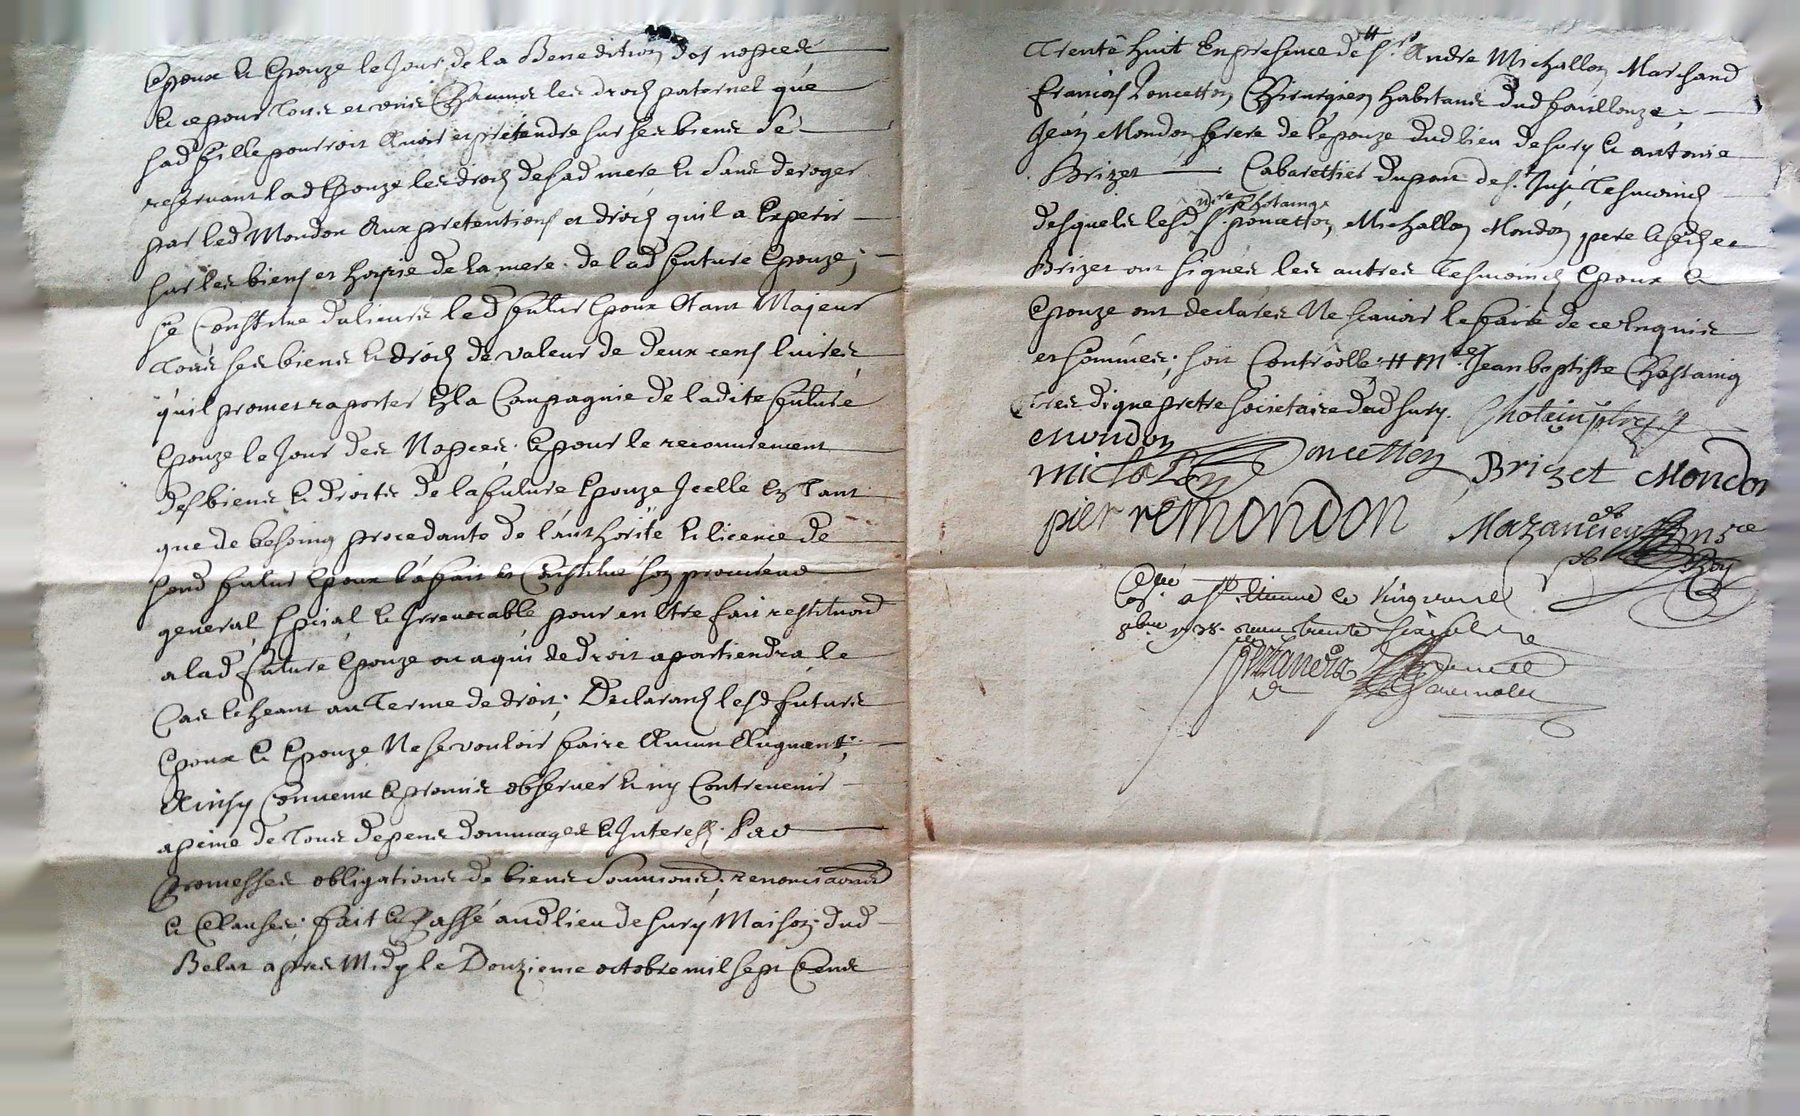 Epoux et Epouze le Jour de la Benedition des nopces
et ce pour tous et vnis Chacuns les droits paternel que
sad fille pourroit Auoir et pretendre sur ses biens se
reservant lad Epouze les droits de sad mere et Sans deroger
par led Mondon Aux pretentions et droits quil a Experir
sur les biens et hoyrie de la mere de lad future Epouze;
se Constitue dalieurs led futur Epoux Etant Majeur
tous ses biens et droits de valeur de deux cens liures
qu'il promet raporter En la Compagnie de ladite future
Epouze le Jour des Nopces; et pour le recouurement
des biens et droits de la future Epouze Jcelle En tant
que de besoing procedante de l'authorite et licence de
sond futur Epoux l'a fait et Constitué son procureur
general, special, et Irreuocable pour en Etre fait restitution
a lad future Epouze ou a qui de droit apartiendra, le
Cas Echeant au terme de droit; Declarant lesd futurs
Epoux et Epouze Ne se vouloir faire Aucun Augment;
Ainsy Conuenu et promis observer et ny Contreuenir
a peine de tous depens dommages et Interests; Par
Promesses obligations de biens Soumions, renonciaons
et Clauses; fait et Passé aud lieu de Sury Maison dud
Belat apres Midy le Douzieme octobre mil sept Cens
trente huit En presence de # Sr. Andre Michallon Marchand
francois Poncetton Chirurgien habitans dud
Jean Mondon frere de l'epouze dud lieu de Sury et antoine
Brizet Cabarettier du port de St. Just, tesmoins
desquels lesd. Srs. poncetton, Michallon Mondon pere et
Brizet ont signés les autres tesmoins Epoux et
Epouze ont declarés Ne scauoir le faire de ce Enquis
et sommés; soit Controolle; # Mre Jean baptiste Chastaing
tres digne pretre socistaire dud Sury. Chotain ptre
mondon
michalon Poncetton Brizet Mondon
pierre mondon Mazancieu
St. Etienne le Vingt
8bre 1738. trente six sols